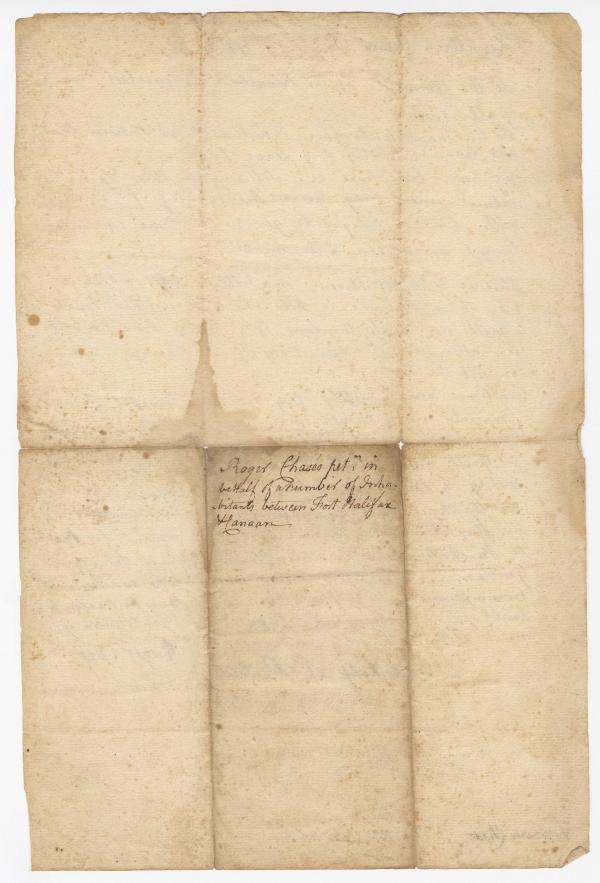 Roger Chases petn. in
behalf of a number of Inha-
bitants between Fort Halifax
& Canaan